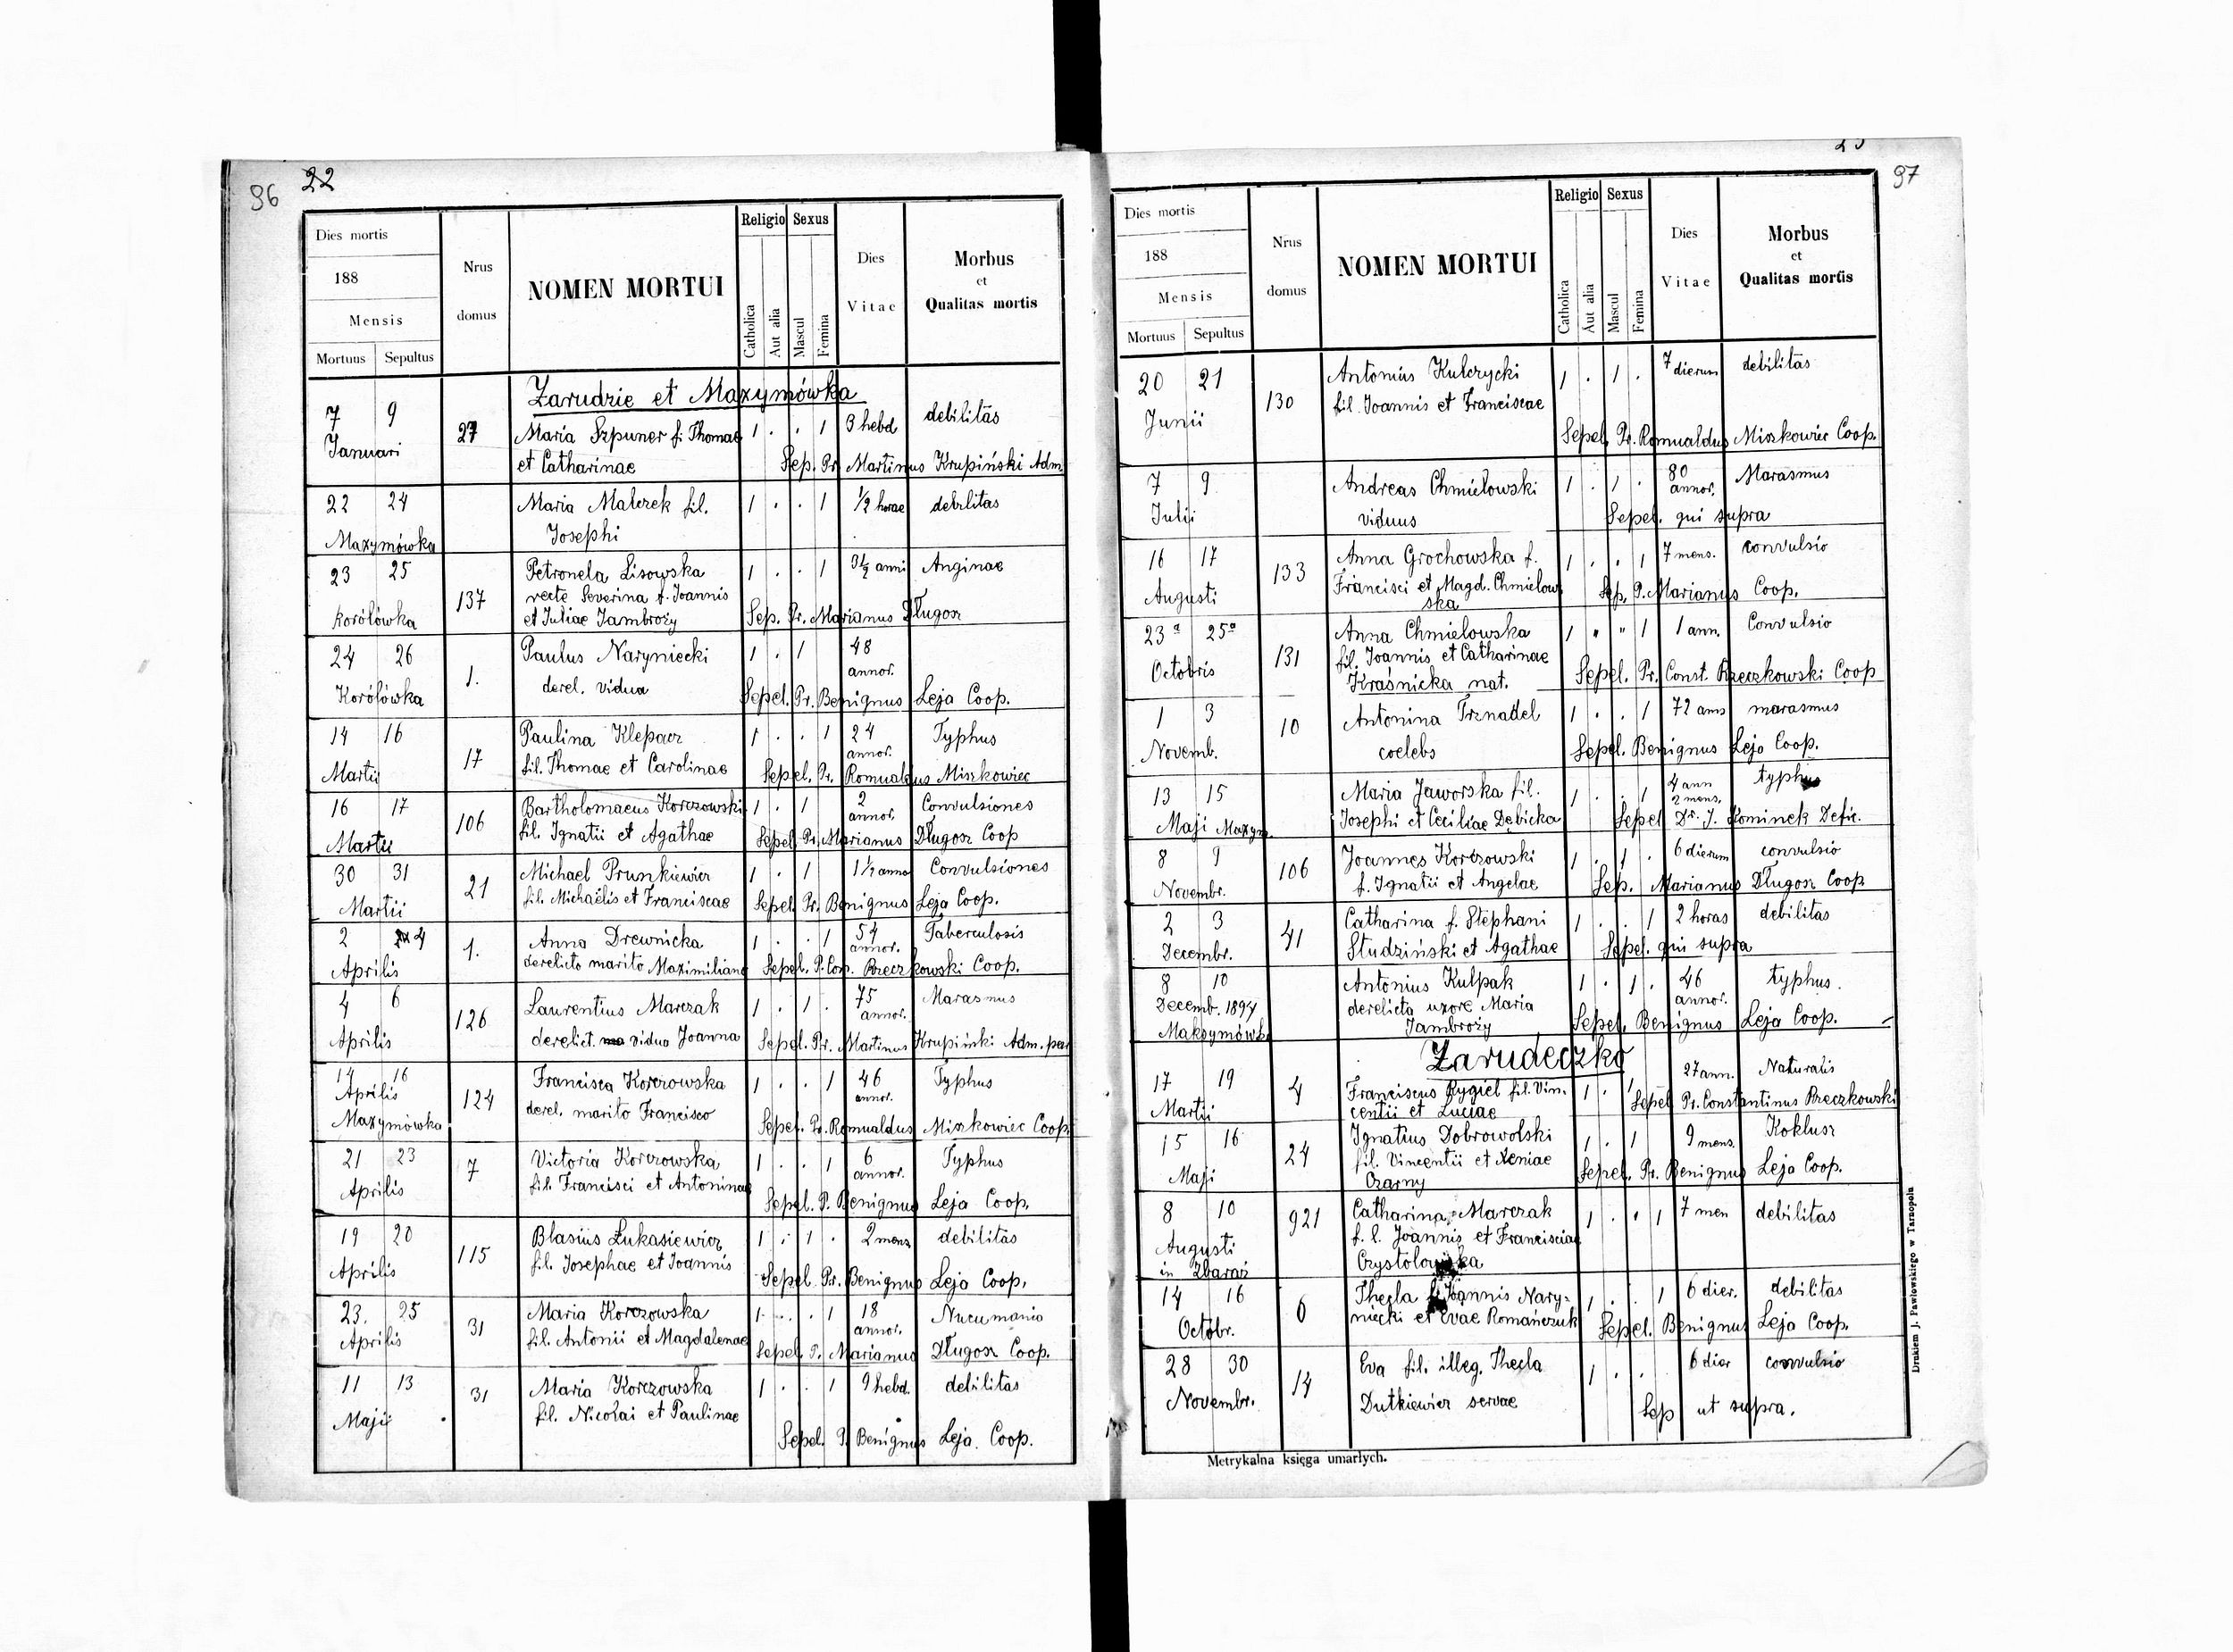 96 22
Dies mortis
188
Mensis
Mortuus Sepultus
Nrus domus
NOMEN MORTUI
Religio Sexus
Catholica Aut alia Mascul Femina
Dies Vitae
Morbus et Qualitas mortis
Zarudzie et Maxymówka
7 9 27 Maria Szpuner f. Thomae 1 . . 1 3 hebd debilitas
Januari et Catharinae Sep. Pr. Martinus Krupiński Adm.
22 24 Maria Malczek fil. 1 . . 1 1/2 horae debilitas
Maxymówka Josephi
23 25 137 Petronela Lisowska 1 . . 1 3 1/2 anni Anginae
recte Severina f. Joannis
Korólówka et Juliae Jambroży Sep. Pr. Marianus Długosz
24 26 1. Paulus Naryniecki 1 . 1 48 annor.
Korólówka derel. vidua Sepel. Pr. Benignus Leja Coop.
14 16 17 Paulina Klepacz 1 . . 1 24 annor. Typhus
Martii fil. Thomae et Carolinae Sepel. Pr. Romualdus Miszkowiec
16 17 106 Bartholomaeus Korczowski 1 . 1 2 annor. Convulsiones
Martii fil. Ignatii et Agathae Sepel. Pr. Marianus Długosz Coop
30 31 21 Michael Prunkiewicz 1 . 1 1 1/2 anno Convulsiones
Martii fil. Michaëlis et Franciscae Sepel. Pr. Benignus Leja Coop.
2 4 1. Anna Drewnicka 1 . . 1 54 annor. Taberculosis
Aprilis derelicto marito Maximiliano Sepel. P. Con. Brzeczkowski Coop.
4 6 126 Laurentius Marczak 1 . 1 . 75 annor. Marasmus
Aprilis derelict. vidua Joanna Sepel. Pr. Martinus Krupiński Adm. par
14 16 124 Francisca Korczowska 1 . . 1 46 annor. Typhus
Aprilis derel. marito Francisco
Maxymówka Sepel. Pr. Romualdus Miszkowiec Coop.
21 23 7 Victoria Korczowska 1 . . 1 6 annor. Typhus
Aprilis fil. Francisci et Antoninae Sepel. P. Benignus Leja Coop.
19 20 115 Blasius Łukasiewicz 1 . 1 . 2 mens debilitas
Aprilis fil. Josephae et Joannis Sepel. Pr. Benignus Leja Coop.
23. 25 31 Maria Korczowska 1 . . 1 18 annor. Nucumania
Aprilis fil. Antonii et Magdalenae Sepel. P. Marianus Długosz Coop.
11 13 31 Maria Korczowska 1 . . 1 9 hebd. debilitas
Maji fil. Nicolai et Paulinae
Sepel. P. Benignus Leja Coop.
97
Dies mortis
188
Mensis
Mortuus Sepultus
Nrus domus
NOMEN MORTUI
Religio Sexus
Catholica Aut alia Mascul Femina
Dies Vitae
Morbus et Qualitas mortis
20 21 130 Antonius Kulczycki 1 . 1 . 7 dierum debilitas
Junii fil. Joannis et Franciscae
Sepel. Pr. Romualdus Miszkowiec Coop.
7 9 Andreas Chmielowski 1 . 1 . 80 annor. Marasmus
Julii viduus Sepel. qui supra
16 17 133 Anna Grochowska f. 1 . . 1 7 mens. convulsio
Augusti Francisci et Magd. Chmielow Sep. P. Marianus Coop.
ska
23ª 25ª 131 Anna Chmielowska 1 " " 1 1 ann. Convulsio
Octobris fil. Joannis et Catharinae Sepel. Pr. Const. Brzeczkowski Coop
Kraśnicka nat.
1 3 10 Antonina Trznadel 1 . . 1 72 ans marasmus
Novemb. coelebs Sepel. Benignus Leja Coop.
13 15 Maria Jaworska fil. 1 . . 1 4 ann 2 mens. typhus
Maji Maxym. Josephi et Ceciliae Dębicka Sepel Dr. J. Kominek Defic.
8 9 106 Joannes Korczowski 1 . 1 . 6 dierum convulsio
Novembr. f. Ignatii et Angelae Sep. Marianus Długosz Coop
2 3 41 Catharina f. Stephani 1 . . 1 2 horas debilitas
Decembr. Studziński et Agathae Sepel. qui supra
8 10 Antonius Kulpak 1 . 1 . 46 annor. typhus.
Decemb. 1894 derelicta uxore Maria
Maksymówka Jambroży Sepel. Benignus Leja Coop.
Zarudeczko
17 19 4 Franciscus Rygiel fil. Vin- 1 . 1 27 ann. Naturalis
Martii centii et Luciae Sepel Pr. Constantinus Brzeczkowski
15 16 24 Ignatius Dobrowolski 1 . 1 9 mens. Koklusz
Maji fil. Vincentii et Xeniae Sepel. Pr. Benignus Leja Coop.
Czarny
8 10 921 Catharina Marczak 1 . . 1 7 men debilitas
Augusti f. l. Joannis et Franciscae
in Zbaraż
14 16 6 Thecla f. Joannis Nary- 1 . . 1 6 dier. debilitas
Octobr. niecki et Evae Romańczuk Sepel. Benignus Leja Coop.
28 30 14 Eva fil. illeg. Thecla 1 . . 6 dier convulsio
Novembr. Dutkiewicz servae Sep ut supra.
Metrykalna księga umarłych.
Drukiem J. Pawłowskiego w Tarnopolu